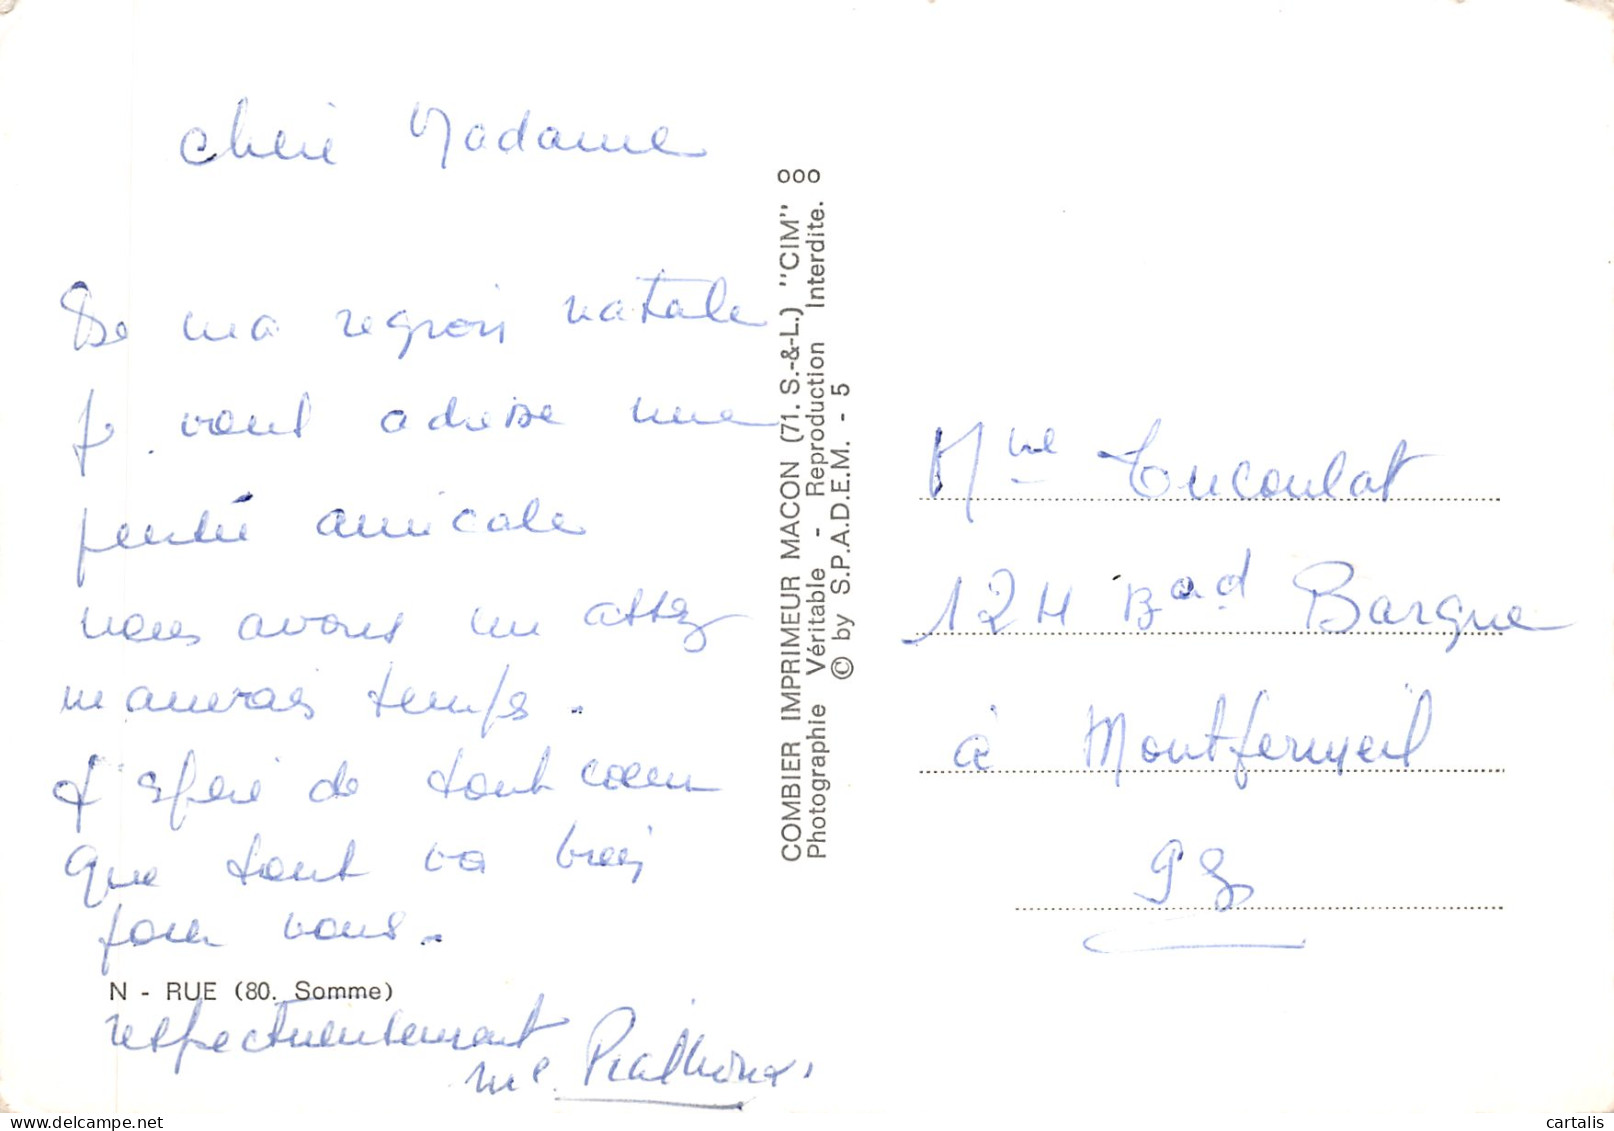 chère Madame
De ma region natale
Je vous adresse une
pensée amicale
nous avons un assez
mauvais temps.
J'espère de tout coeur
que tout va bien
pour vous.
N - RUE (80. Somme)
respectueusement
Mme
COMBIER IMPRIMEUR MACON (71. S.-&-L.) "CIM"
Photographie Véritable - Reproduction Interdite.
© by S.P.A.D.E.M. - 5
ooo
Mme Tucoulat
124 Bad Bargue
à Montfermeil
93
cartalis